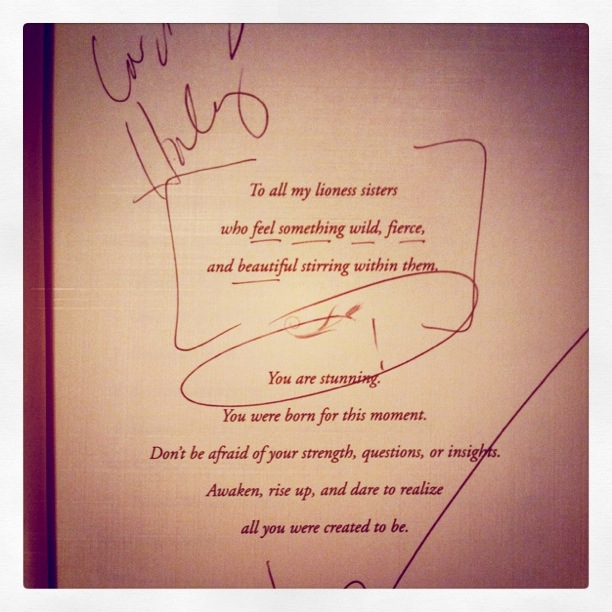 To all my lioness sisters
who feel something wild, fierce,
and beautiful stirring within them.
You are stunning.
You were born for this moment.
Don't be afraid of your strength, questions, or insights.
Awaken, rise up, and dare to realize
all you were created to be.